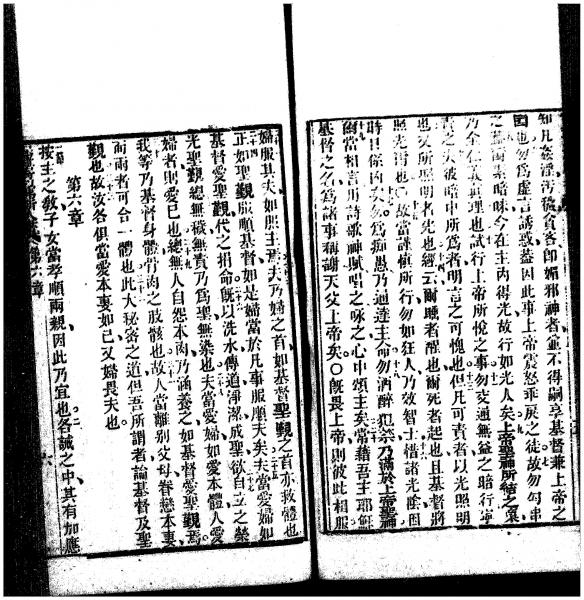 知凡姦淫污穢貪吝卽媚邪神者並不得嗣享基督兼上帝之
國也勿爲虛言誘惑蓋因此事上帝震怒乖戾之徒故勿勾串
之蓋爾素暗昧今在主內得光故行如光人矣上帝聖神所結之菓
乃全仁義眞理也試行上帝所悅之事勿交通無益之暗行寧
責之夫彼暗中所爲者明言之可愧也但凡可責者以光照明
也又所照明者光也經云爾睡者醒也爾死者起也且基督將
照光爾也故當謹愼所行勿如狂人乃效智士惜諸光陰因
時日係凶矣勿爲痴愚乃通達主命勿酒醉犯禁乃滿於上帝聖神
爾當相言用詩歌神賦唱之咏之心中頌主矣常藉吾主耶穌
基督之名爲諸事稱謝天父上帝矣○旣畏上帝則彼此相服
婦服其夫如服主焉夫乃婦之首如基督聖覲之首亦救體也
正如聖覲服順基督如是婦當於凡事服順夫矣夫當愛婦如
基督愛聖覲代之捐命旣以洗水傳道淨潔成聖欲自立之榮
光聖覲總無穢無責乃爲聖無染也夫當愛婦如愛本體人愛
婦者則愛己也總無人自怨本肉乃涵養之如基督愛聖覲焉
我等乃基督身體骨肉之肢骸也故人當離別父母眷戀本妻
而兩者可合一體也此大秘密之道但吾所謂者論基督及聖
覲也故汝各俱當愛本妻如己又婦畏夫也
第六章
按主之敎子女當孝順兩親因此乃宜也各誡之中其有加應
第六章